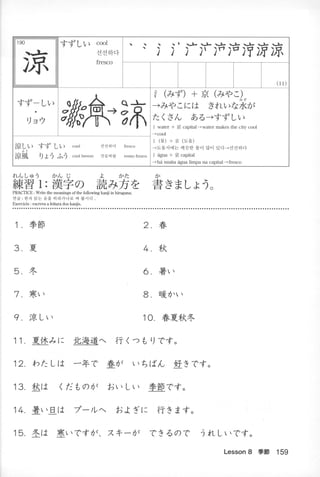 190
涼
すずしい
cool
선선하다
fresco
(11)
すず－しい
・
リョウ
氵(みず) + 京 (みやこ)
→みやこには きれいな水が
みず
たくさん ある→すずしい
氵 water + 京 capital→water makes the city cool
→cool
→há muita água limpa na capital→fresco
涼しい すずしい cool 선선하다 fresco
涼風 りょうふう cool breeze
れんしゅう かんじ よ かた か
練習1:漢字の 読み方を 書きましょう。
PRACTICE : Write the meanings of the following kanji in hiragana.
Exercício : escreva a leitura dos kanjis.
1. 季節
2. 春
3. 夏
4. 秋
5. 冬
6. 暑い
7. 寒い
8. 暖かい
9. 涼しい
10. 春夏秋冬
11. 夏休みに 北海道へ 行くつもりです。
12. わたしは 一年で 春が いちばん 好きです。
13. 秋は くだものが おいしい 季節です。
14. 暑い日は プールへ およぎに 行きます。
15. 冬は 寒いですが、スキーが できるので うれしいです。
Lesson 8 季節 159